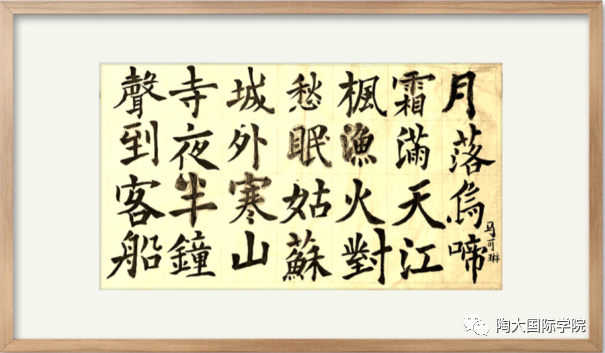 月落烏啼
霜滿天江
楓漁火對
愁眠姑蘇
城外寒山
寺夜半鐘
聲到客船
马可琳
陶大国际学院